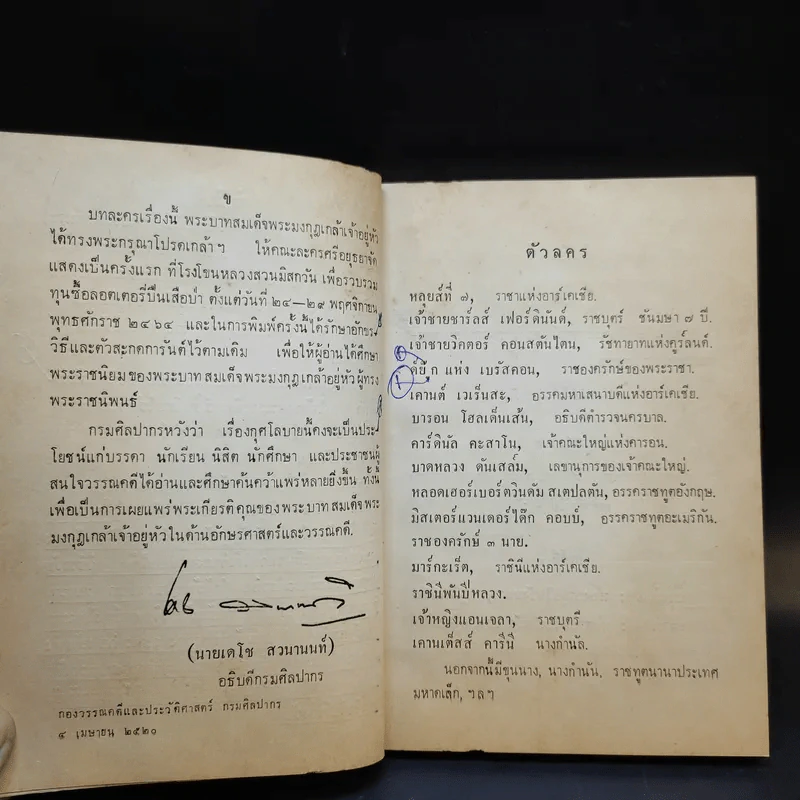 ข
บทละครเรื่องนี้ พระบาทสมเด็จพระมงกุฎเกล้าเจ้าอยู่หัว
ได้ทรงพระกรุณาโปรดเกล้าฯ ให้คณะละครศรีอยุธยาจัด
แสดงเป็นครั้งแรก ที่โรงโขนหลวงสวนมิสกวัน เพื่อรวบรวม
ทุนซื้อลอตเตอรี่ปืนเสือป่า ตั้งแต่วันที่ ๒๔—๒๙ พฤศจิกายน
พุทธศักราช ๒๔๖๔ และในการพิมพ์ครั้งนี้ได้รักษาอักขร-
วิธีและตัวสะกดการันต์ไว้ตามเดิม เพื่อให้ผู้อ่านได้ศึกษา
พระราชนิยมของพระบาทสมเด็จพระมงกุฎเกล้าเจ้าอยู่หัวผู้ทรง
พระราชนิพนธ์
กรมศิลปากรหวังว่า เรื่องกุศโลบายนี้คงจะเป็นประ-
โยชน์แก่บรรดา นักเรียน นิสิต นักศึกษา และประชาชนผู้
สนใจวรรณคดีได้อ่านและศึกษาค้นคว้าแพร่หลายยิ่งขึ้น ทั้งนี้
เพื่อเป็นการเผยแพร่พระเกียรติคุณของพระบาทสมเด็จพระ
มงกุฎเกล้าเจ้าอยู่หัวในด้านอักษรศาสตร์และวรรณคดี.
(นายเดโช สวนานนท์)
อธิบดีกรมศิลปากร
กองวรรณคดีและประวัติศาสตร์ กรมศิลปากร
๔ เมษายน ๒๕๒๐
ตัวลคร
หลุยส์ที่ ๗, ราชาแห่งอาร์เคเชีย.
เจ้าชายชาร์ลส์ เฟอร์ดินันต์, ราชบุตร์ ชันมษา ๗ ปี.
เจ้าชายวิคตอร์ คอนสตันไตน, รัชทายาทแห่งคูร์ลนด์.
ด์ยุ๊ก แห่ง เบรัสคอน, ราชองครักษ์ของพระราชา.
เคานต์ เวเร็นสะ, อรรคมหาเสนาบดีแห่งอาร์เคเชีย.
บารอน โฮลเต็นเส้น, อธิบดีตำรวจนครบาล.
คาร์ดินัล คะสาโน, เจ้าคณะใหญ่แห่งคารอน.
บาดหลวง ดันเสล์ม, เลขานุการของเจ้าคณะใหญ่.
หลอดเฮอร์เบอร์ตวินดัม สเตปลตัน, อรรคราชทูตอังกฤษ.
มิสเตอร์แวนเดอร์ได๊ก คอบบ์, อรรคราชทูตอะเมริกัน.
ราชองครักษ์ ๓ นาย.
มาร์กะเร็ต, ราชินีแห่งอาร์เคเชีย.
ราชินีพันปีหลวง.
เจ้าหญิงแอนเจลา, ราชบุตรี
เคานเต็สส์ คารินี นางกำนัล.
นอกจากนี้มีขุนนาง, นางกำนัน, ราชทูตนานาประเทศ
มหาดเล็ก, ฯลฯ